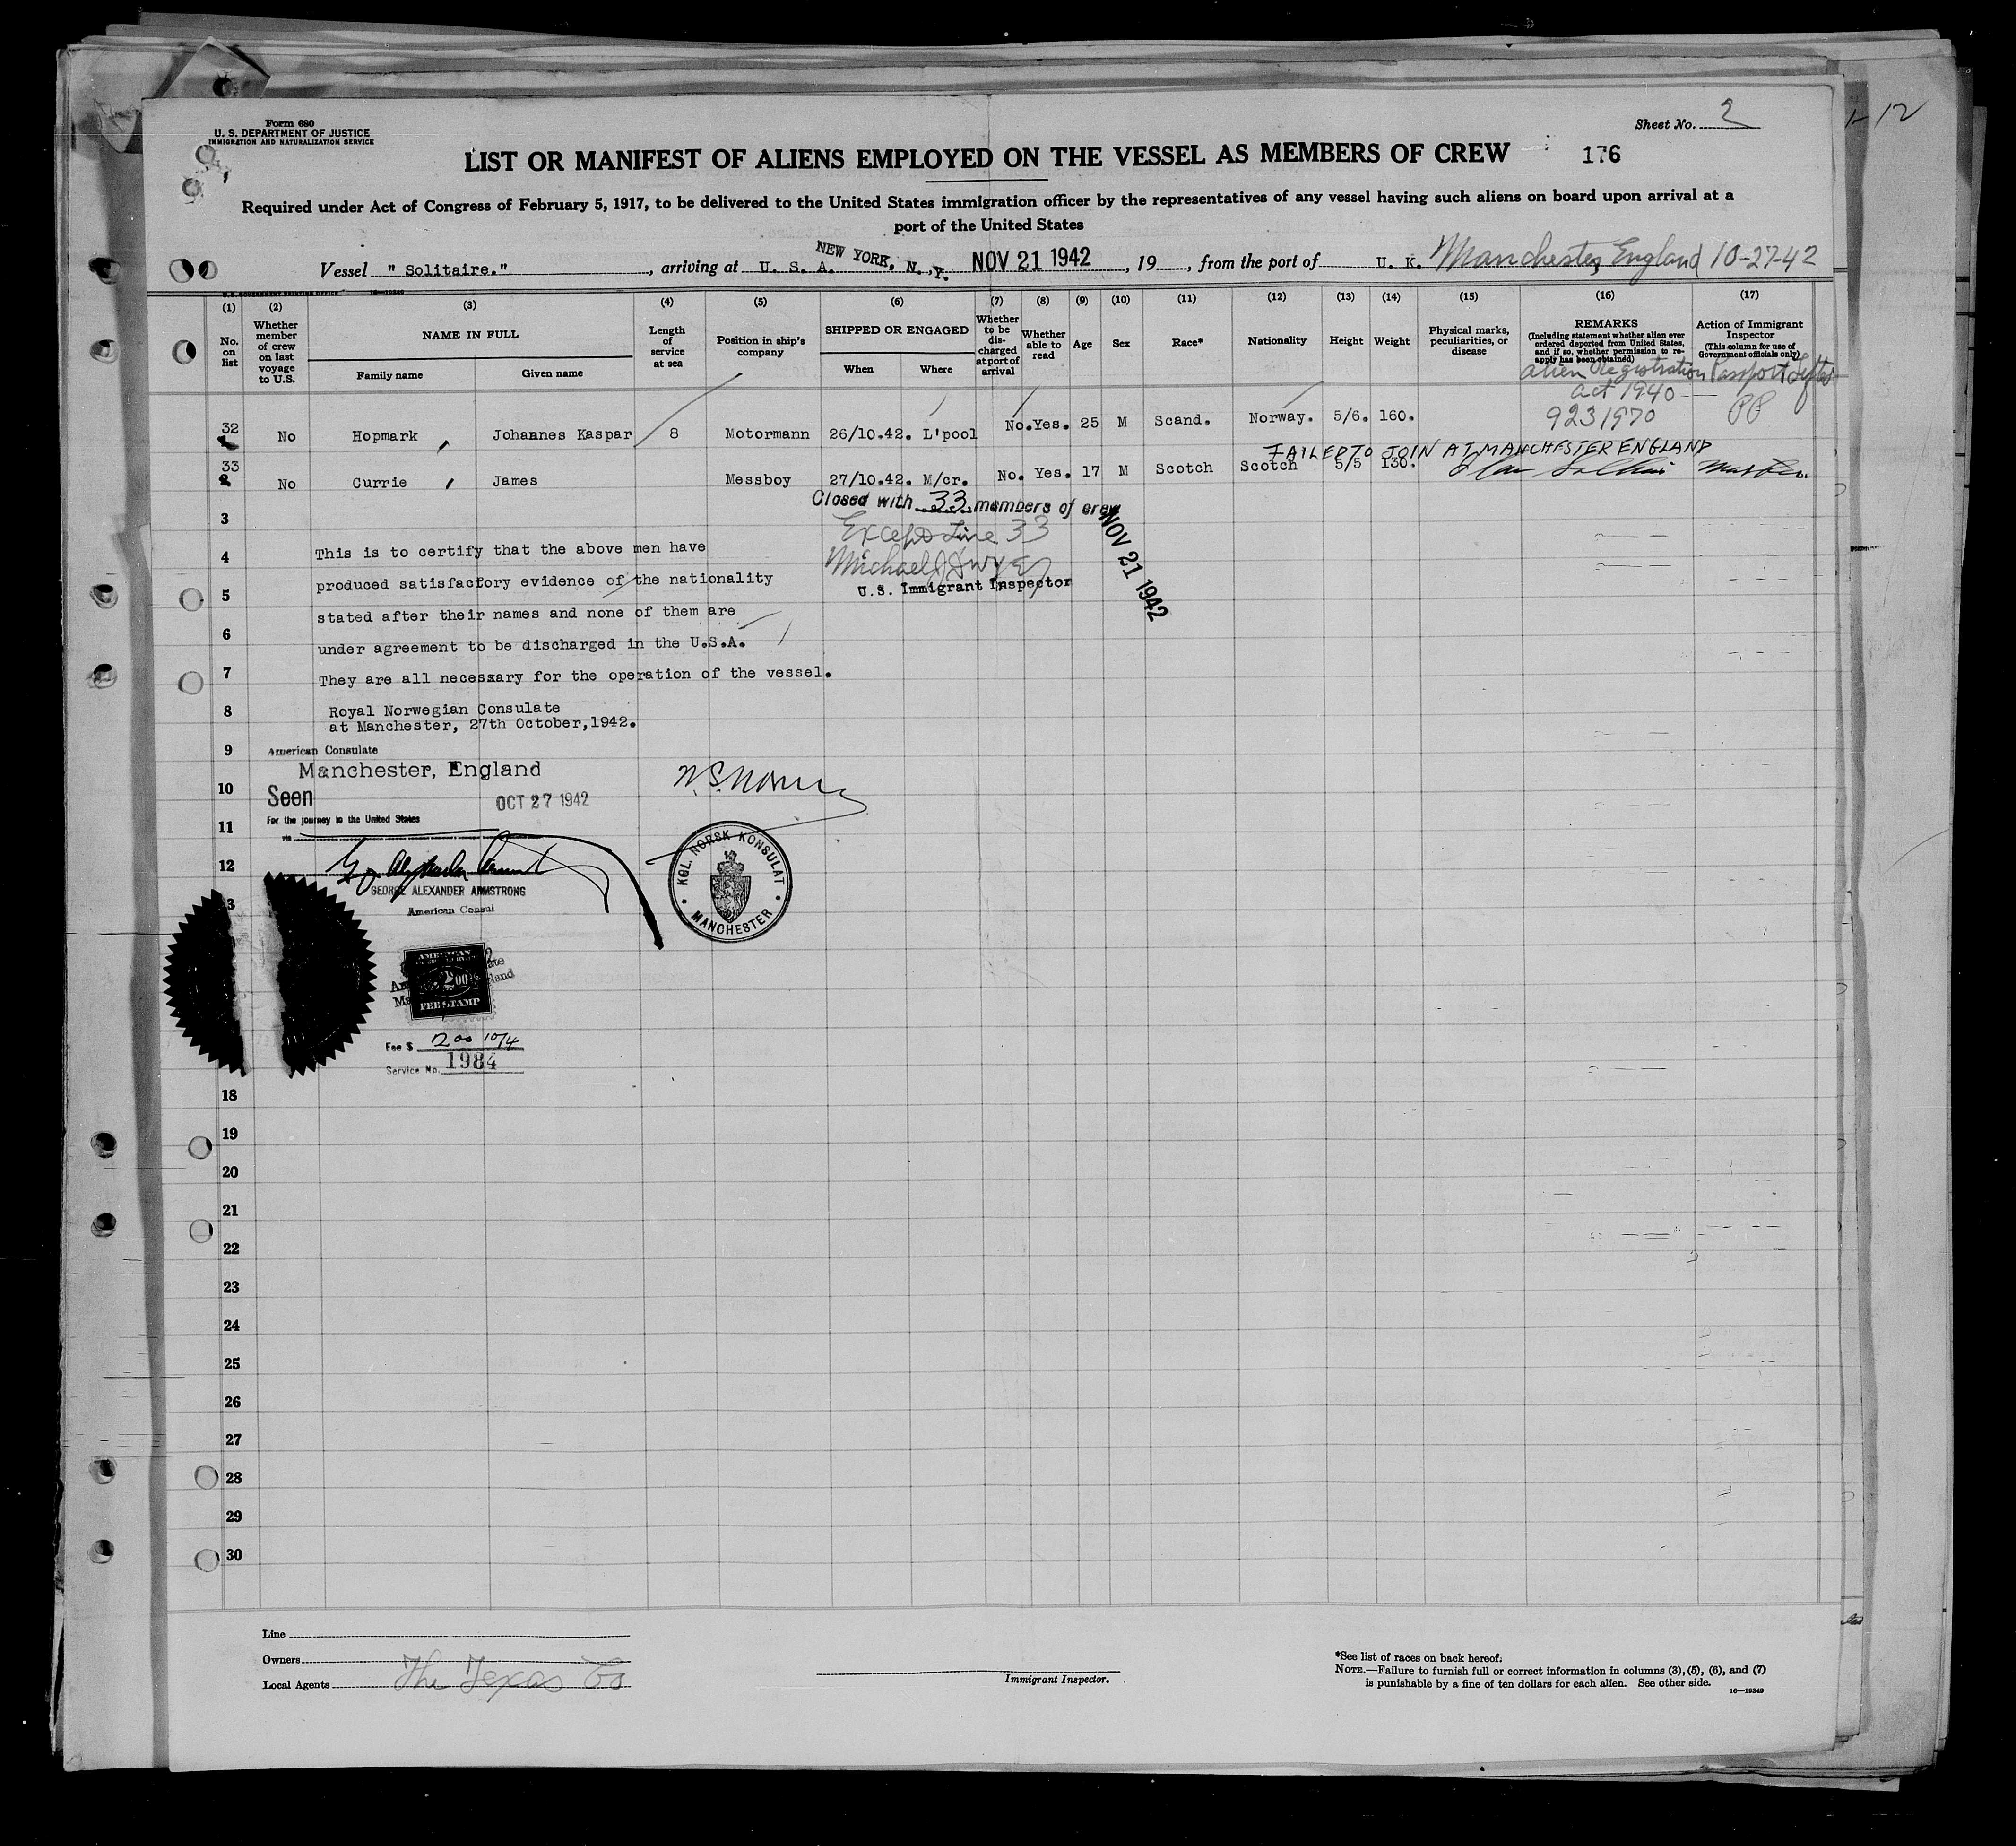 Form 680
U. S. DEPARTMENT OF JUSTICE
IMMIGRATION AND NATURALIZATION SERVICE
Sheet No. 2
1-12
LIST OR MANIFEST OF ALIENS EMPLOYED ON THE VESSEL AS MEMBERS OF CREW 176
Required under Act of Congress of February 5, 1917, to be delivered to the United States immigration officer by the representatives of any vessel having such aliens on board upon arrival at a
port of the United States
Vessel " Solitaire." , arriving at U. S. A. NEW YORK, N. Y. NOV 21 1942 , 19 , from the port of U. K. Manchester, England 10-27-42
(1) (2) (3) (4) (5) (6) (7) (8) (9) (10) (11) (12) (13) (14) (15) (16) (17)
No. on list
Whether member of crew on last voyage to U.S.
NAME IN FULL
Family name
Given name
Length of service at sea
Position in ship's company
SHIPPED OR ENGAGED
When
Where
Whether to be discharged at port of arrival
Whether able to read
Age
Sex
Race*
Nationality
Height
Weight
Physical marks, peculiarities, or disease
REMARKS
(Including statement whether alien ever ordered deported from United States, and if so, whether permission to reapply has been obtained)
Action of Immigrant Inspector
(This column for use of Government officials only)
Alien Registration Passport
Act 1940
32 No Hopmark , Johannes Kaspar 8 Motormann 26/10.42. L'pool No. Yes. 25 M Scand. Norway. 5/6. 160. 9231970 PP
FAILED TO JOIN AT MANCHESTER ENGLAND
33 No Currie , James Messboy 27/10.42. M/cr. No. Yes. 17 M Scotch Scotch 5/5 130. Master.
Closed with 33 members of crew
Except Line 33
Michael J Dwyer
U.S. Immigrant Inspector
NOV 21 1942
3
4
This is to certify that the above men have
produced satisfactory evidence of the nationality
5
stated after their names and none of them are
6
under agreement to be discharged in the U.S.A.
7
They are all necessary for the operation of the vessel.
8
Royal Norwegian Consulate
at Manchester, 27th October, 1942.
9
American Consulate
Manchester, England
10
Seen OCT 27 1942
For the journey to the United States
11
via
12
GEORGE ALEXANDER ARMSTRONG
American Consul
KGL. NORSK KONSULAT
MANCHESTER
AMERICAN
2 00
FEE STAMP
Fee $ 2.00 10/4
Service No. 1984
18
19
20
21
22
23
24
25
26
27
28
29
30
Line
Owners
Local Agents The Texas Co
Immigrant Inspector.
*See list of races on back hereof.
NOTE.—Failure to furnish full or correct information in columns (3), (5), (6), and (7)
is punishable by a fine of ten dollars for each alien. See other side.
16—19349